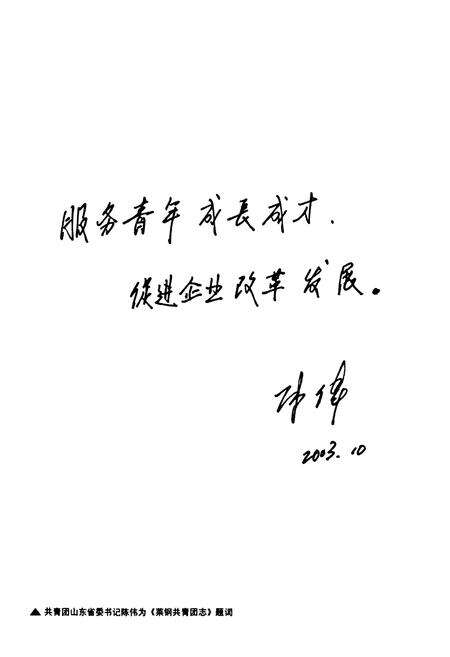 服务青年成長成才、
促进企业改革发展。
陈伟
2003.10
▲ 共青团山东省委书记陈伟为《莱钢共青团志》题词